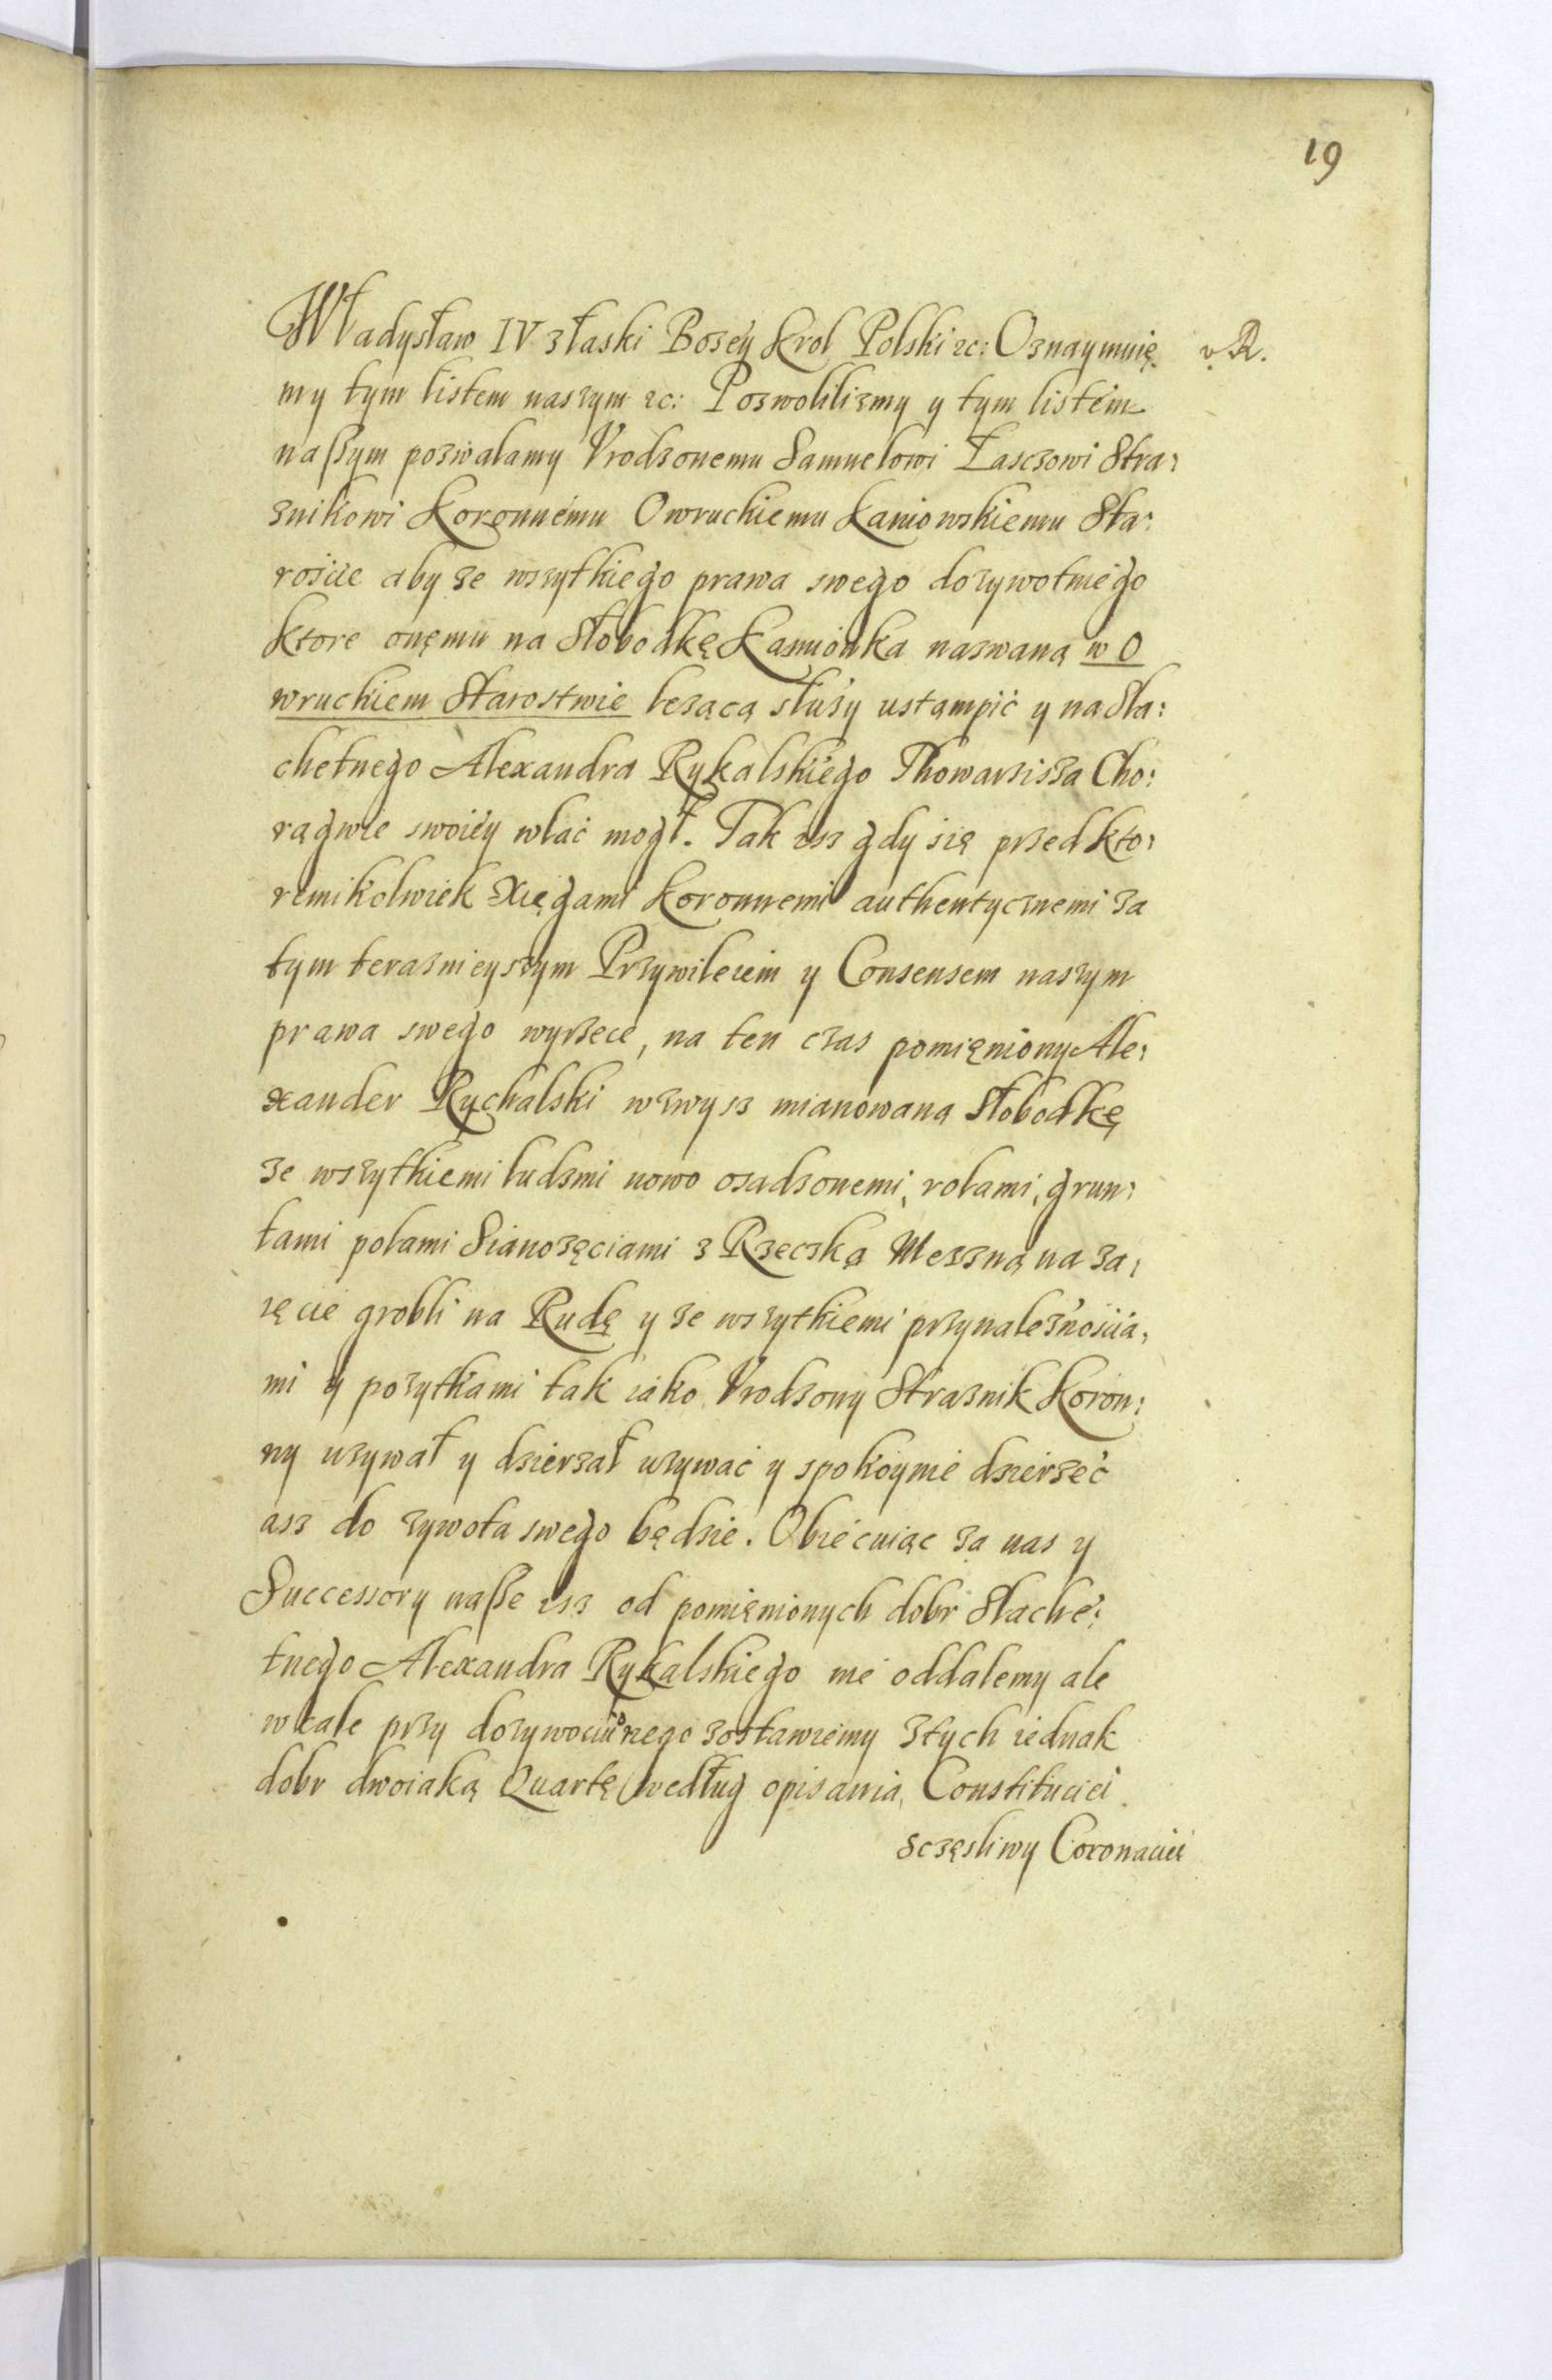 19
Władysław IV z łaski Bozey Krol Polski etc: Oznaymuię v. R.
my tym listem naszym etc: Pozwolilizmy y tym listem
naszym pozwalamy Vrodzonemu Samuelowi Łasczowi Stra:
znikowi Koronnemu Owruckiemu Kaniowskiemu Sta:
roscie aby ze wszytkiego prawa swego dozywotniego
ktore onęmu na Słobodkę Kamionka nazwaną w O
wruckiem Starostwie lezącą słuzy ustąmpić y na Sla:
chetnego Alexandra Rykalskiego Thowarzisza Cho:
rągwie swoiey wlać mogł. Tak isz gdy się przed kto:
remikolwiek Xięgami Koronnemi authentycznemi za
tym teraznieyszym Przywileiem y Consensem naszym
prawa swego wyrzece, na ten czas pomięniony Ale:
xander Rychalski wzwysz mianowaną Słobodkę
ze wszytkiemi ludzmi nowo osadzonemi, rolami, grun:
tami polami Sianozęciami z Rzeczką Mezzną na za:
ięcie grobli na Rudę y ze wszytkiemi przynaleznoscia:
mi y pozytkami tak iako Vrodzony Straznik Koron:
ny uzywał y dzierzał uzywać y spokoynie dzierzeć
asz do zywota swego będzie. Obiecuiąc za nas y
Successory nasze isz od pomięnionych dobr Slache:
tnego Alexandra Rykalskiego nie oddalemy ale
w cale przy dozywociu iego zostawiemy z tych iednak
dobr dwoiaką Quartę według opisania Constituciei
sczęsliwy Coronaciei